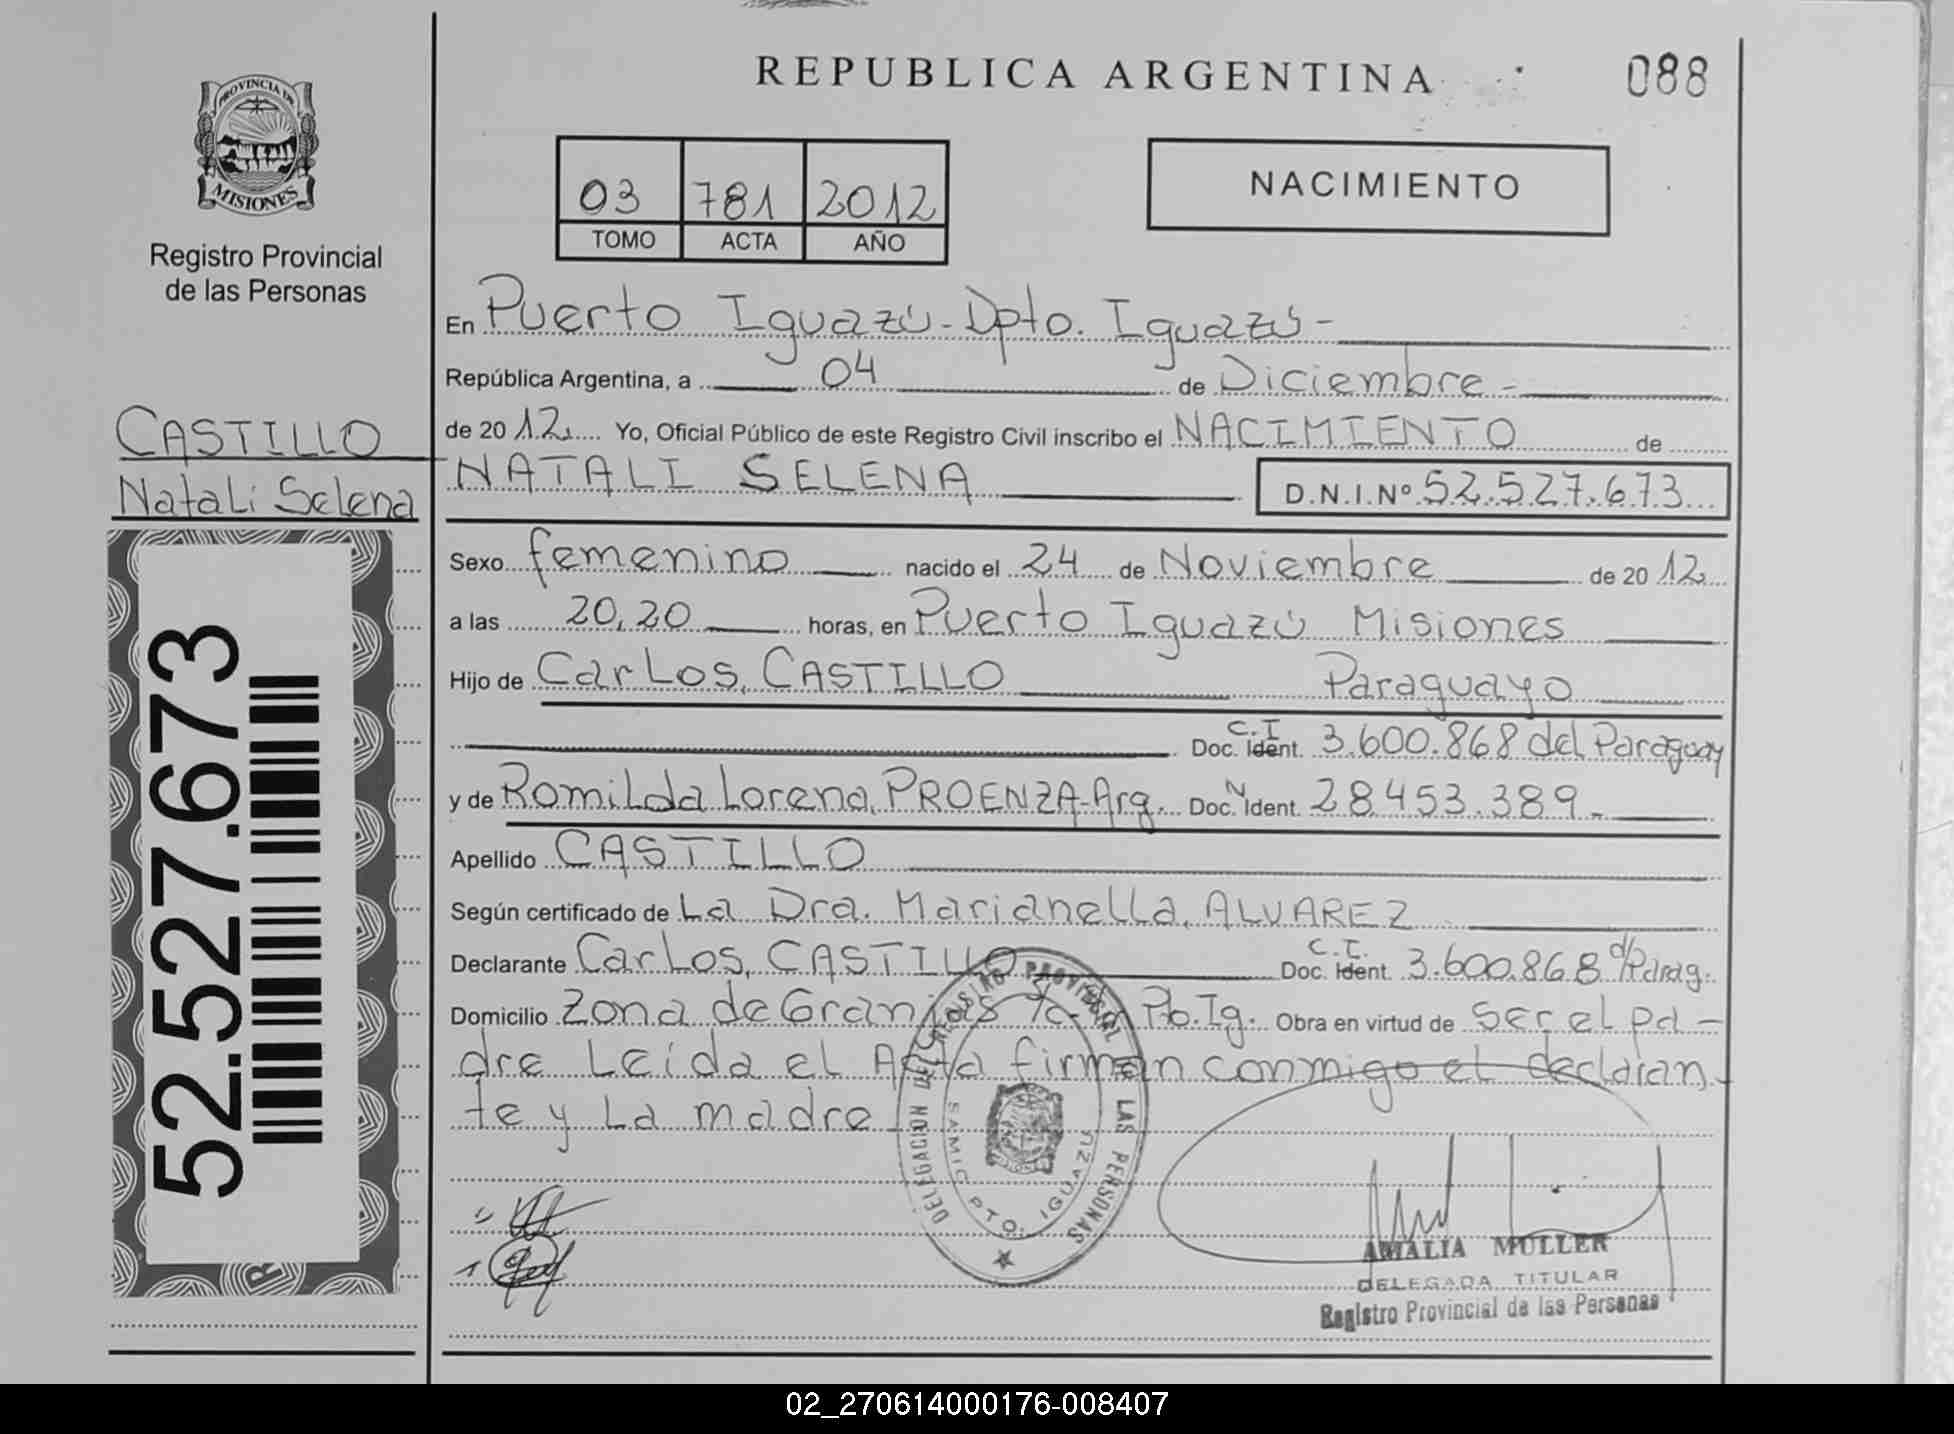 REPUBLICA ARGENTINA
088
PROVINCIA DE
MISIONES
Registro Provincial
de las Personas
03 781 2012
TOMO ACTA AÑO
NACIMIENTO
En Puerto Iguazú - Dpto. Iguazú -
República Argentina, a 04 de Diciembre -
de 2012 Yo, Oficial Público de este Registro Civil inscribo el NACIMIENTO de
NATALI SELENA D.N.I.Nº 52.527.673
CASTILLO
Natali Selena
52.527.673
Sexo femenino nacido el 24 de Noviembre de 2012
a las 20,20 horas, en Puerto Iguazú Misiones
Hijo de Carlos, CASTILLO Paraguayo
C.I Doc. Ident. 3.600.868 del Paraguay
y de Romilda Lorena, PROENZA - Arg. Doc. N Ident. 28.453.389 -
Apellido CASTILLO
Según certificado de La Dra. Marianella, ALVAREZ
Declarante Carlos, CASTILLO C.I. Doc. Ident. 3.600.868 d/Parag.
Domicilio Zona de Granjas Pto. Ig. Obra en virtud de Ser el pa-
dre Leída el Acta firman conmigo el declaran-
te y La madre
DELEGACION DEL REGISTRO PROVINCIAL DE LAS PERSONAS
SAMIC PTO. IGUAZU
AMALIA MULLER
DELEGADA TITULAR
Registro Provincial de las Personas
02_270614000176-008407